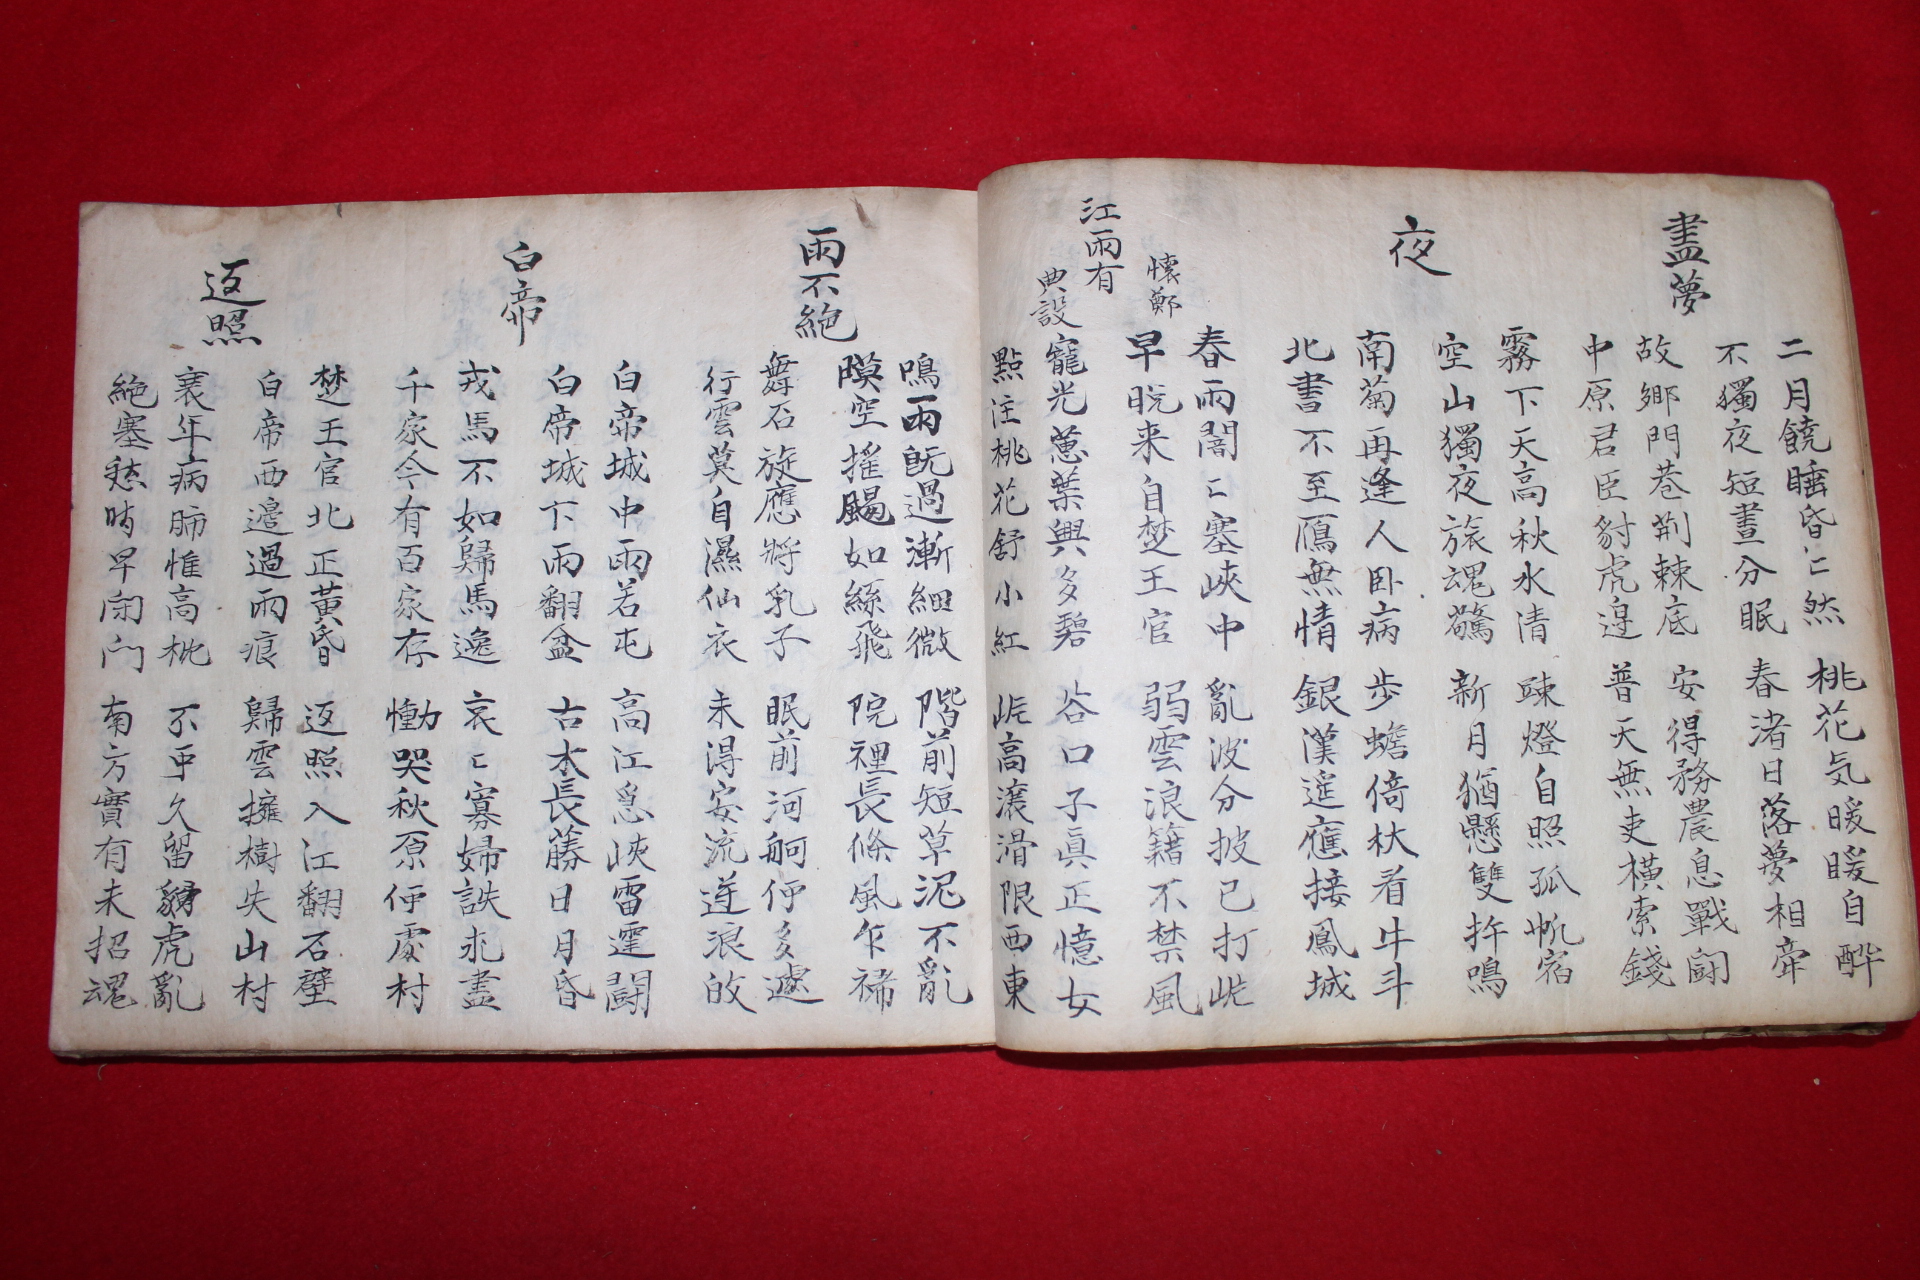 晝夢
二月饒睡昏〻然 桃花気暖暖自酔
不獨夜短晝分眠 春渚日落夢相牽
故鄉門巷荆棘底 安得務農息戰闘
中原君臣豺虎邉 普天無吏横索錢
夜
霧下天高秋水清 踈燈自照孤帆宿
空山獨夜旅魂驚 新月猶懸雙杵鳴
南菊再逢人卧病 步蟾倚杖看牛斗
北書不至鴈無情 銀漢遥應接鳳城
江雨有
懷鄭
典設
春雨闇〻塞峽中 亂波分披已打岸
早晩来自楚王宮 弱雲浪籍不禁風
寵光蕙葉與多碧 谷口子真正憶女
點注桃花舒小紅 岸高瀼滑限西東
雨不絶
鳴雨既過漸細微 階前短草泥不亂
暯空摇颺如絲飛 院裡長條風乍稀
舞石旋應將乳子 眠前河舸何多遽
行雲莫自濕仙衣 未得安流逆浪故
白帝
白帝城中雨若屯 高江急峽雷霆闘
白帝城下雨翻盆 古木長藤日月昏
戎馬不如歸馬逸 哀〻寡婦誅求盡
千家今有百家存 慟哭秋原何處村
返照
楚王宮北正黃昏 返照入江翻石壁
白帝西邉過雨痕 歸雲擁樹失山村
衰年病肺惟高枕 不可久留豺虎亂
絶塞愁時早閉門 南方實有未招魂